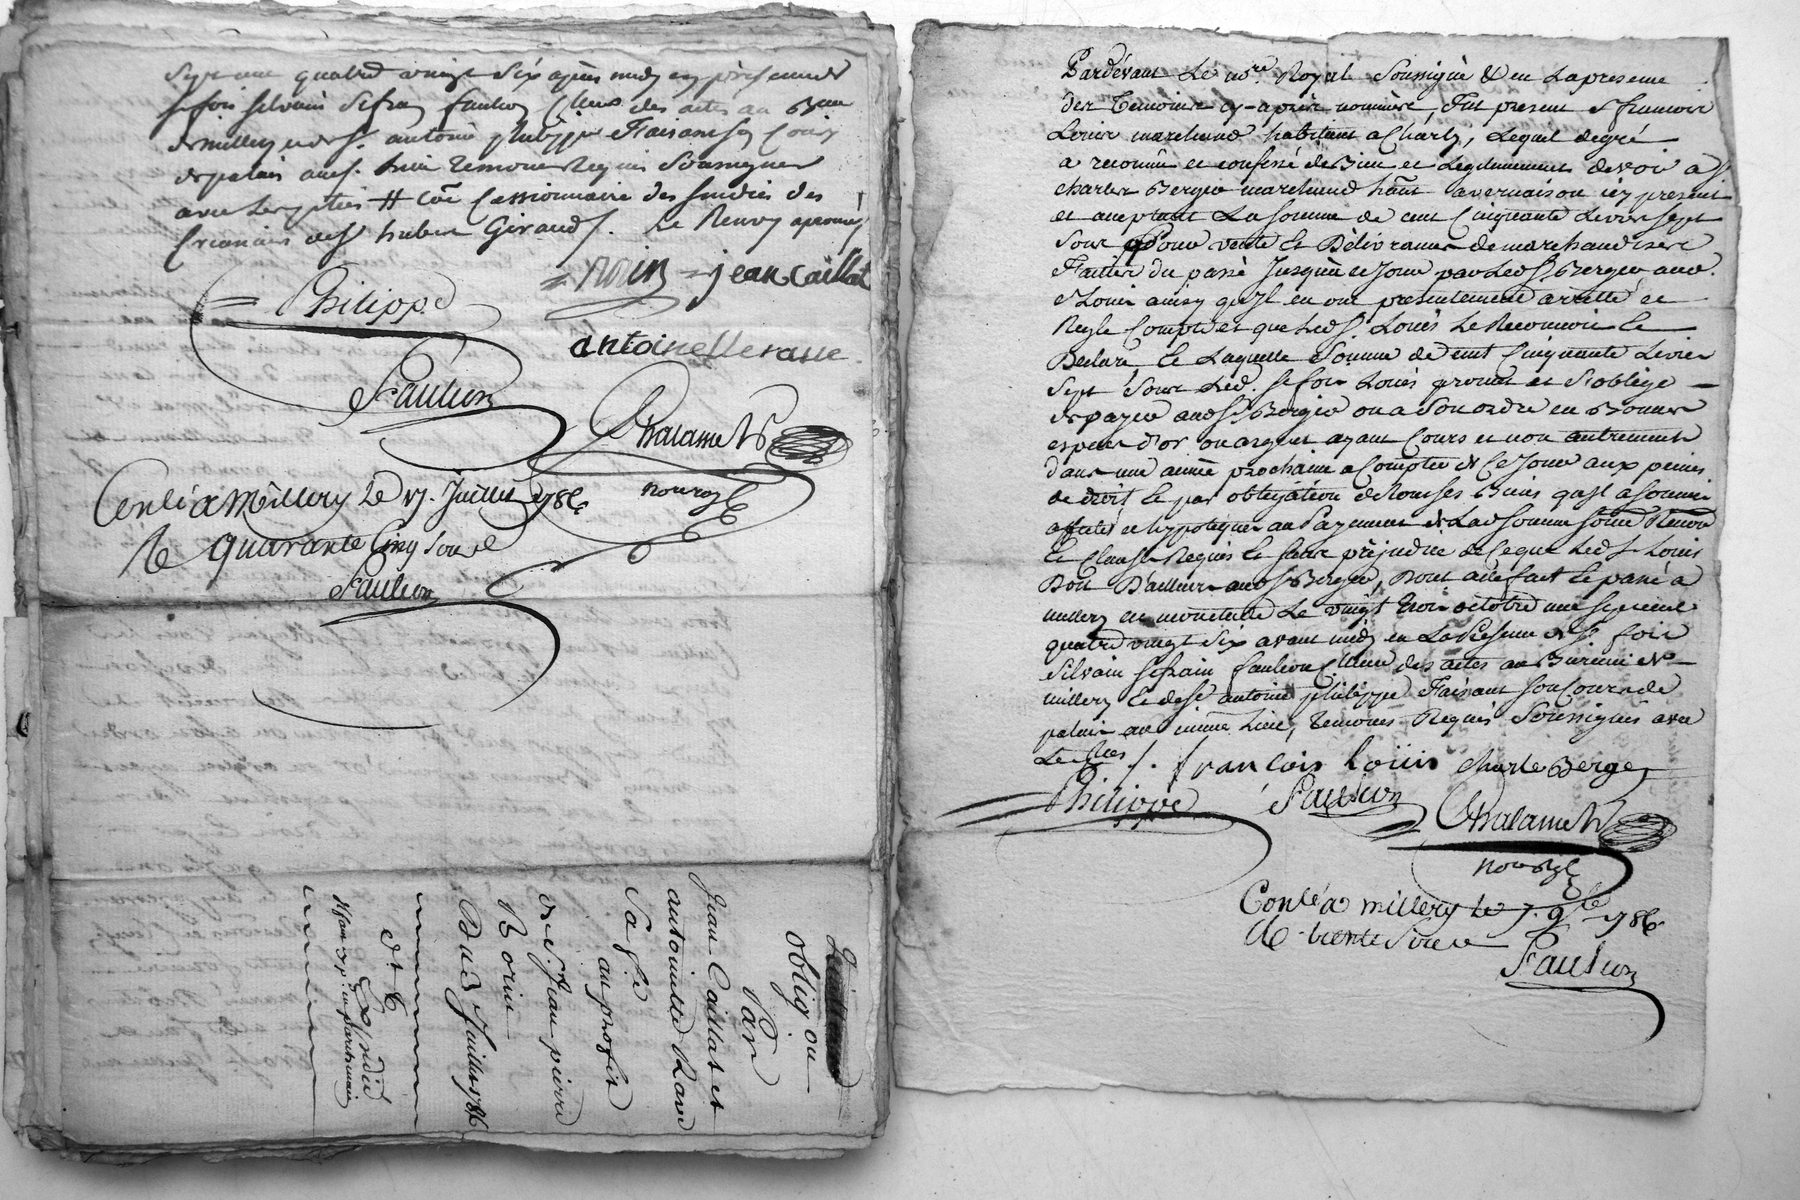 sept cent quatre vingt six après midy en présence de
sr fois Silvain Sefrain faulion Cleur des actes au Bau
de millery et de sr. antoine philippe Faisant son Cours
de palais aud. lieu temoins Requis Soussignes
avec les parties # Cessionnaire des sindics des
Creanciers de sr hubert Giraud /. Le Renvoy aprouvé
Philippe
= Rorin = jean caillat
antoinette rave
Faulion
Chalamel
no. royal
Conlé a Millery Le 17. Juillet 1786
Rs quarante Cinq sous
Faulion
obligon
Par
Jean Caillat et
antoinette Rave
Sa fe
au profit
de sr. Jean pierre
Rorin
Du 3 Juillet 1786
Expedié
en parchemin
Pardevant Le nore. Royal Soussigné & en La presence
des Temoins cy-après nommés, Fut present sr francois
Louis marchand habitant a Charly, Lequel de gré
a reconnu et confessé de Bien et Legitimement devoir a sr
charles Berger marchand habt. a vernaison icy present
et acceptant La somme de cent Cinquante Livres sept
Sous Pour vente & Délivrance de marchandises
Faites du passé Jusqu'à ce Jour par Led. sr. Berger aud.
sr Louis ainsy qu'Il en ont presentement arretté et
Regle Compte et que Led. sr. Louis Le Reconnoit &
Declare, & Laquelle Somme de cent Cinquante Livres
sept Sous Led. sr fois Louis promet et s'oblige
de payer aud. sr Berger ou a Son ordre en Bonnes
especes d'or ou argent ayant Cours et non autrement
dans une année prochaine a Compter de Ce Jour aux peines
de droit & par obligation de Tous ses Biens qu'Il a soumis
affectés et hypotequés au Payement de Lad. Somme
& Clauses Requis & sans préjudice de Ce que Led. sr Louis
Doit D'ailleurs aud. sr Berger, Dont acte fait & passé a
millery en mon etude Le vingt trois octobre mil sept cent
quatre vingt six avant midy en La presence de sr fois
Silvain Sefrain faulion Cleur des actes au Bureau de
millery & de sr antoine philippe Faisant son Cours de
palais au même Lieu, temoins Requis Soussignés avec
Les ptes /. francois loüis charle Berger
Philippe Faulion Chalamel
no. royal
Conlé a millery le 7. 9bre 1786
Rs. trente Sous
Faulion